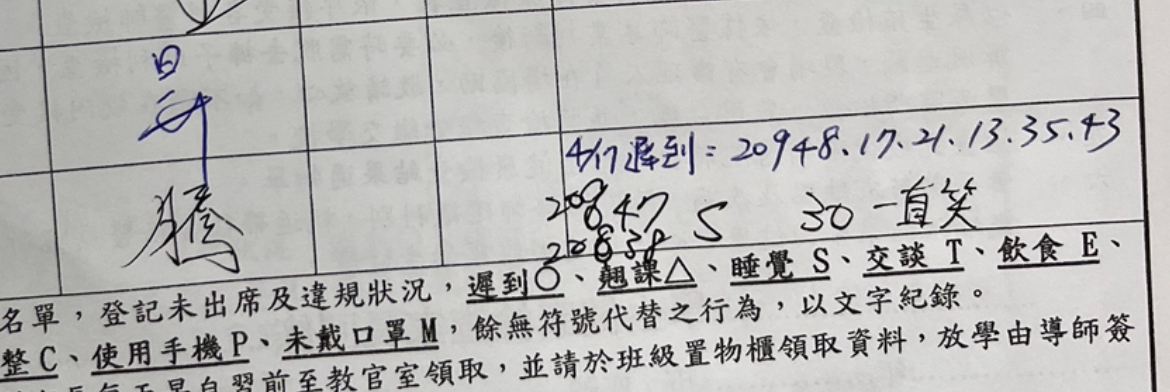 昇
4/17遲到：20948.17.21.13.35.43
騰
20847 S 30 一直笑
20838
名單，登記未出席及違規狀況，遲到○、翹課△、睡覺 S、交談 T、飲食 E、
整 C、使用手機 P、未戴口罩 M，餘無符號代替之行為，以文字紀錄。
自習前至教官室領取，並請於班級置物櫃領取資料，放學由導師簽